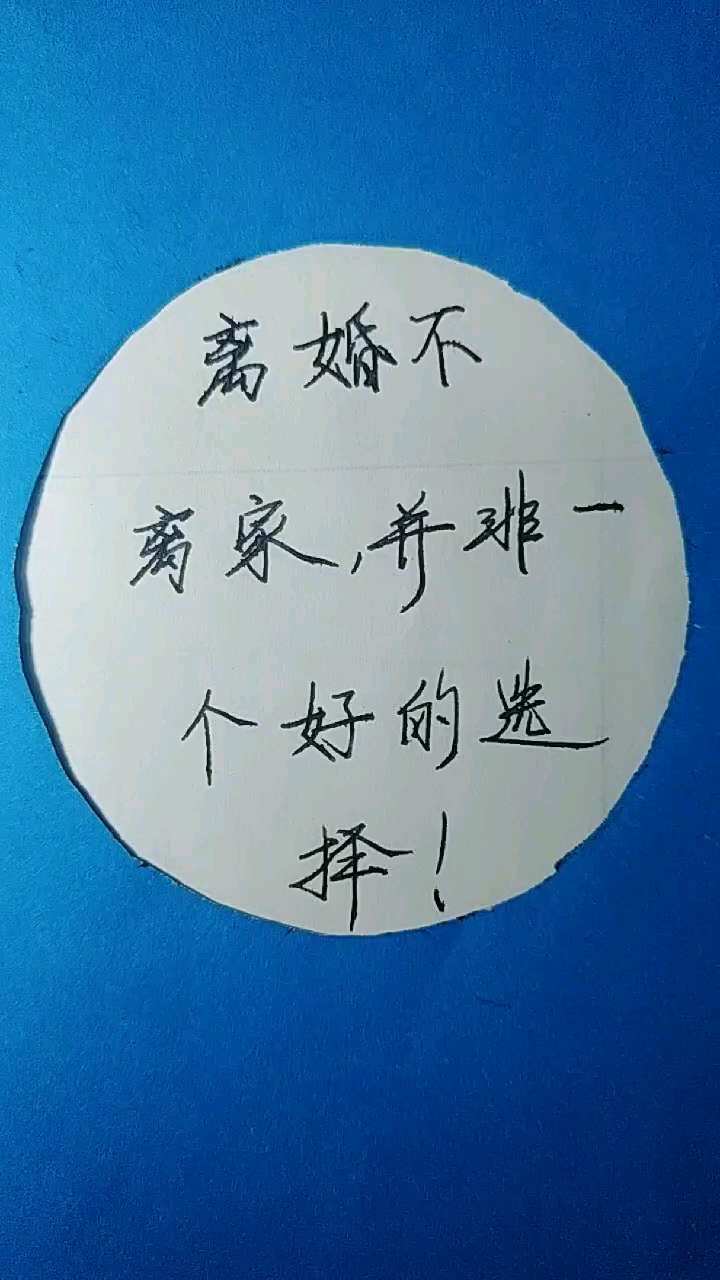 离婚不
离家,并非一
个好的选
择!